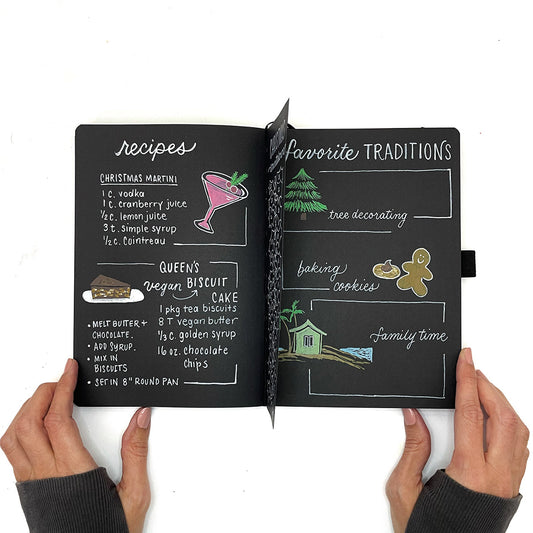 recipes
CHRISTMAS MARTINI
1 c. vodka
1 c. cranberry juice
1/2 c. lemon juice
3 t. simple syrup
1/2 c. Cointreau
QUEEN'S
vegan BISCUIT
CAKE
1 pkg tea biscuits
8 T vegan butter
1/3 c. golden syrup
16 oz. chocolate
chips
• MELT BUTTER +
CHOCOLATE.
• ADD SYRUP.
• MIX IN
BISCUITS
• SET IN 8" ROUND PAN
favorite TRADITIONS
tree decorating
baking
cookies
family time